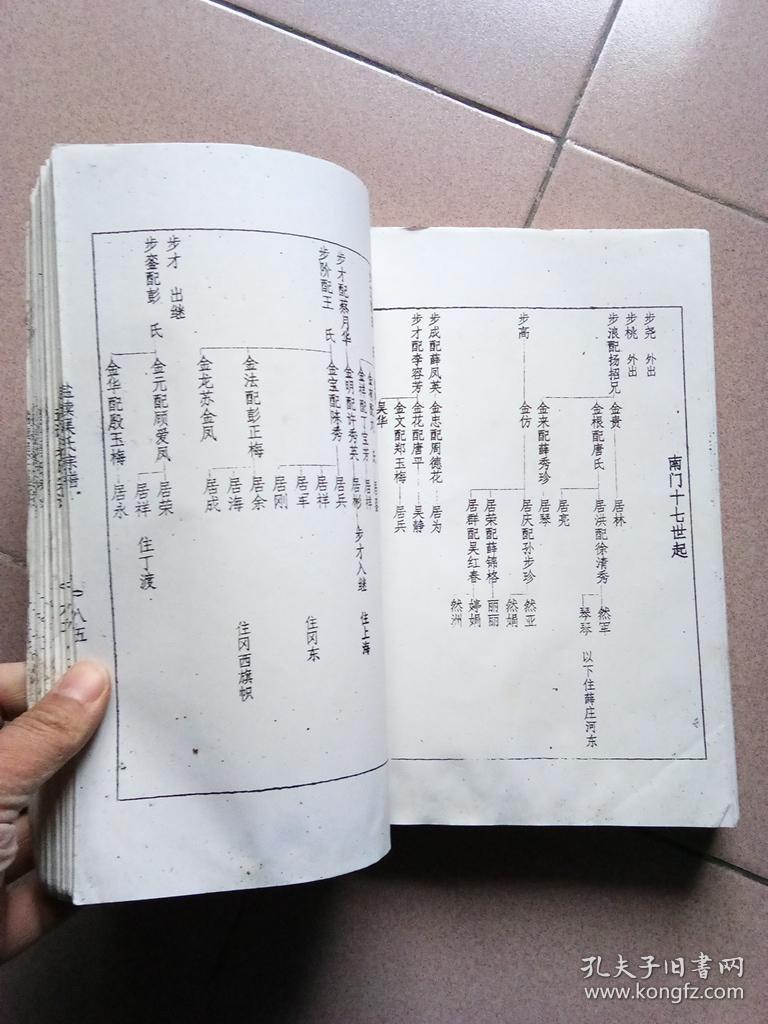 南门十七世起
步尧 外出
步桃 外出
步浪配扬招兄
金贵
居林
金根配唐氏
居洪配徐清秀
然军
琴琴
以下住薛庄河东
居亮
步高
金来配薛秀珍
居琴
金仿
居庆配孙步珍
然亚
然娟
居荣配薛锦格
丽丽
居群配吴红春
婷娟
然洲
步成配薛凤英
金忠配周德花
居为
步才配李容芳
金花配唐平
吴静
金文配郑玉梅
居兵
吴华
步才配蔡月华
金明配许秀英
居彬
步才入继
住上海
步阶配王 氏
金宝配陈秀
居兵
居祥
居军
居刚
住冈东
金法配彭正梅
居余
居海
居成
住冈西旗帜
金龙苏金凤
步才 出继
步銮配彭 氏
金元配顾爱凤
居荣
居祥
住丁渡
金华配殷玉梅
居永
八五
孔夫子旧书网
www.kongfz.com